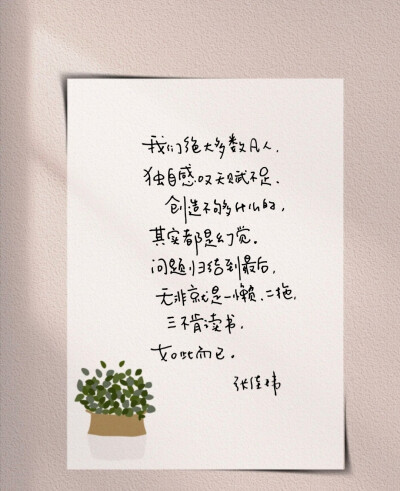 我们绝大多数凡人，
独自感叹天赋不足、
创造不够多什么的，
其实都是幻觉。
问题归结到最后，
无非就是一懒、二拖，
三不肯读书，
如此而已。
张佳玮